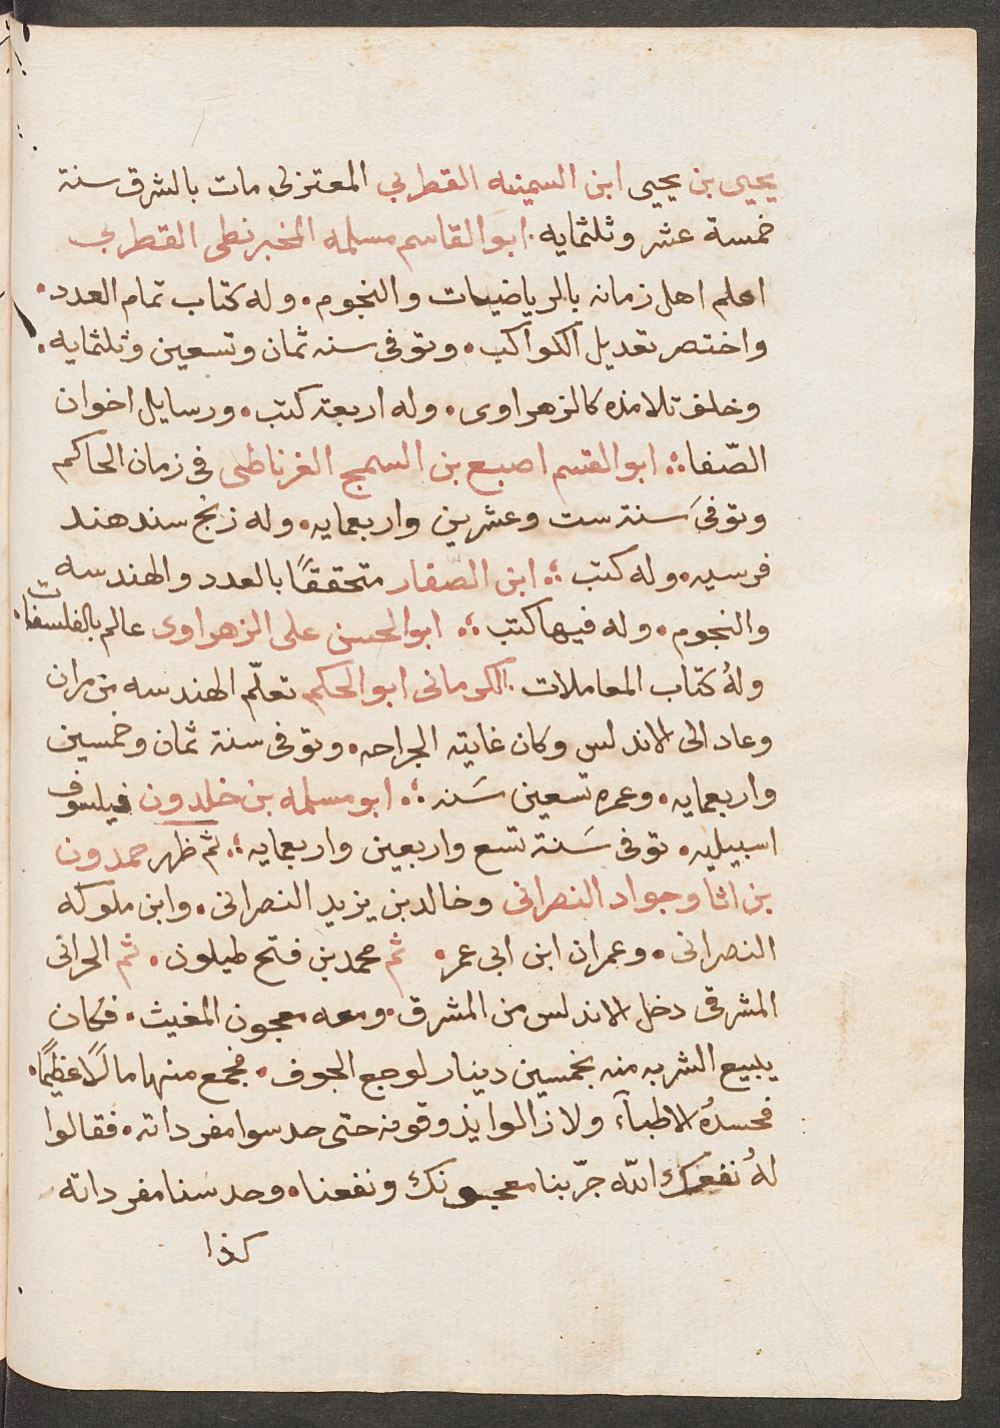 يحيى بن يحيى ابن السمينه القطربي المعتزلى مات بالشرق سنة
خمسة عشر وثلثمايه. ابو القاسم مسلمه المخبرنطى القطربي
اعلم اهل زمانه بالرياضيات والنجوم. وله كتاب تمام العدد.
واختصر تعديل الكواكب. وتوفى سنه ثمان وتسعين وثلثمايه.
وخلف تلامذه كالزهراوى. وله اربعة كتب. ورسايل اخوان
الصّفا؞ ابو القسم اصبع بن السمج الغرناطى فى زمان الحاكم
وتوفىَ سنة ست وعشرين واربعمايه. وله زنج سندهند
فرسيه. وله كتب ؞ ابن الصفار متحققًا بالعدد والهندسه
والنجوم. وله فيها كتب ؞ ابو الحسن على الزهراوى عالم بالفلسفات.
ولهُ كتاب المعاملات. الكرمانى ابو الحكم تعلّم الهندسه من مران
وعاد الى الاندلس وكان غايته الجراحه. وتوفى سنة ثمان وخمسين
واربعمايه. وعمره تسعين سَنه ؞ ابو مسلمه بن خلدون فيلسوف
اسبيليه. توفى سَنة تسع واربعين واربعمايه ؞ ثم ظهر حمدون
بن اثا وجواد النصرانى وخالد بن يزيد النصرانى. وابن ملوكه
النصرانى. وعمران ابن ابى عمر. ثم محمد بن فتح طيلون. ثم الحرانى
المشرقى دخل الاندلس من المشرق. ومعه معجون المغيث. فكان
يبيع الشربه منه بخمسين دينار لوجع الجوف. فجمع منها مالًا عظيمًا.
فحسدُهُ الاطبآء ولا زالوا يذوقونه حتى حدسوا مفرداته. فقالوا
لهُ نفعك الله جرّبنا معجونك ونفعنا. وحدسنا مفرداته
كذا